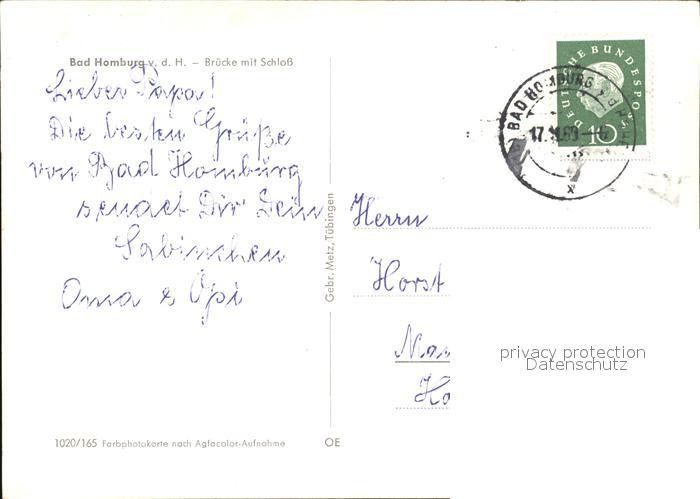 Bad Homburg v. d. H. – Brücke mit Schloß
Lieber Papa!
Die besten Grüße
von Bad Homburg
sendet Dir Dein
Sabinchen
Oma & Opi
1020/165 Farbphotokarte nach Agfacolor-Aufnahme
OE
Gebr. Metz, Tübingen
DEUTSCHE BUNDESPOST
10
BAD HOMBURG
Herrn
Horst
privacy protection
Datenschutz